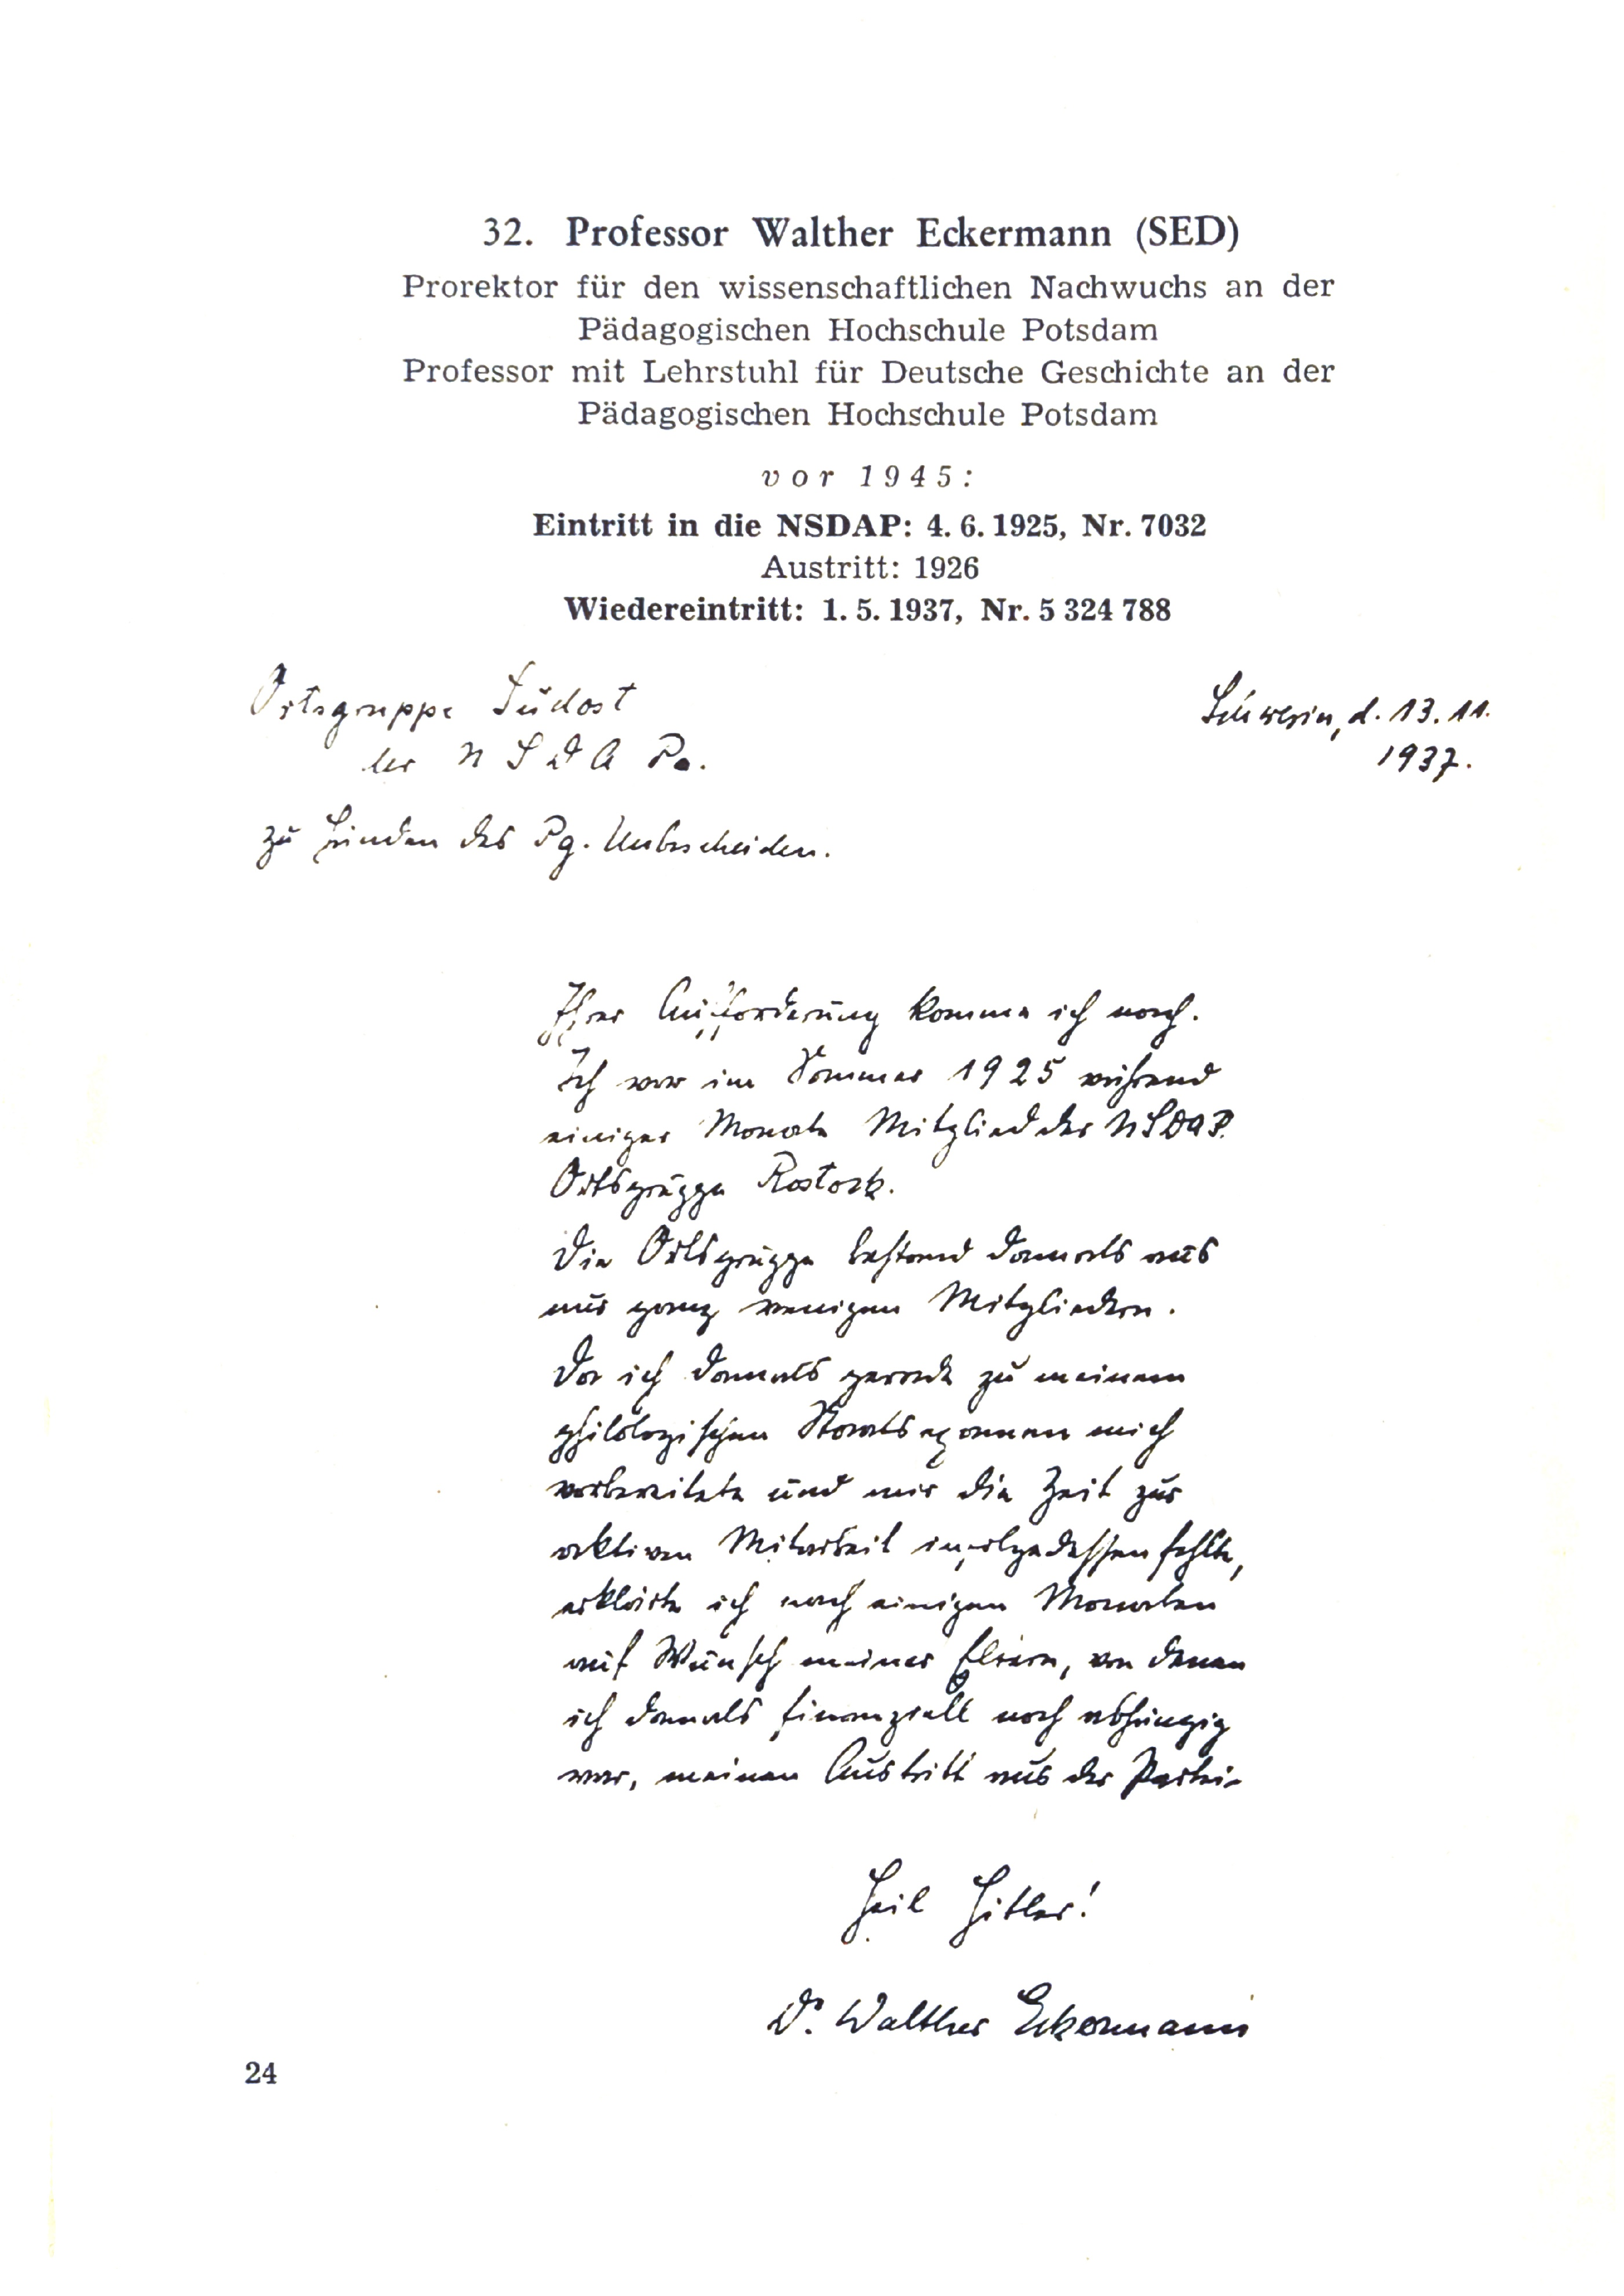 32. Professor Walther Eckermann (SED)
Prorektor für den wissenschaftlichen Nachwuchs an der
Pädagogischen Hochschule Potsdam
Professor mit Lehrstuhl für Deutsche Geschichte an der
Pädagogischen Hochschule Potsdam
vor 1945:
Eintritt in die NSDAP: 4. 6. 1925, Nr. 7032
Austritt: 1926
Wiedereintritt: 1. 5. 1937, Nr. 5 324 788
Ortsgruppe Südost
der N S D A P.
Schwerin, d. 13. 11.
1937.
zu Händen des Pg.
Ihrer Aufforderung komme ich nach.
Ich war im Sommer 1925 während
einiger Monate Mitglied der NSDAP.
Ortsgruppe Rostock.
Die Ortsgruppe bestand damals aus
nur ganz wenigen Mitgliedern.
Da ich damals gerade zu meinem
philologischen Staatsexamen mich
vorbereitete und mir die Zeit zur
aktiven Mitarbeit infolgedessen fehlte,
erklärte ich nach einigen Monaten
auf Wunsch meiner Eltern, von denen
ich damals finanziell noch abhängig
war, meinen Austritt aus der Partei.
Heil Hitler!
Dr. Walther Eckermann
24